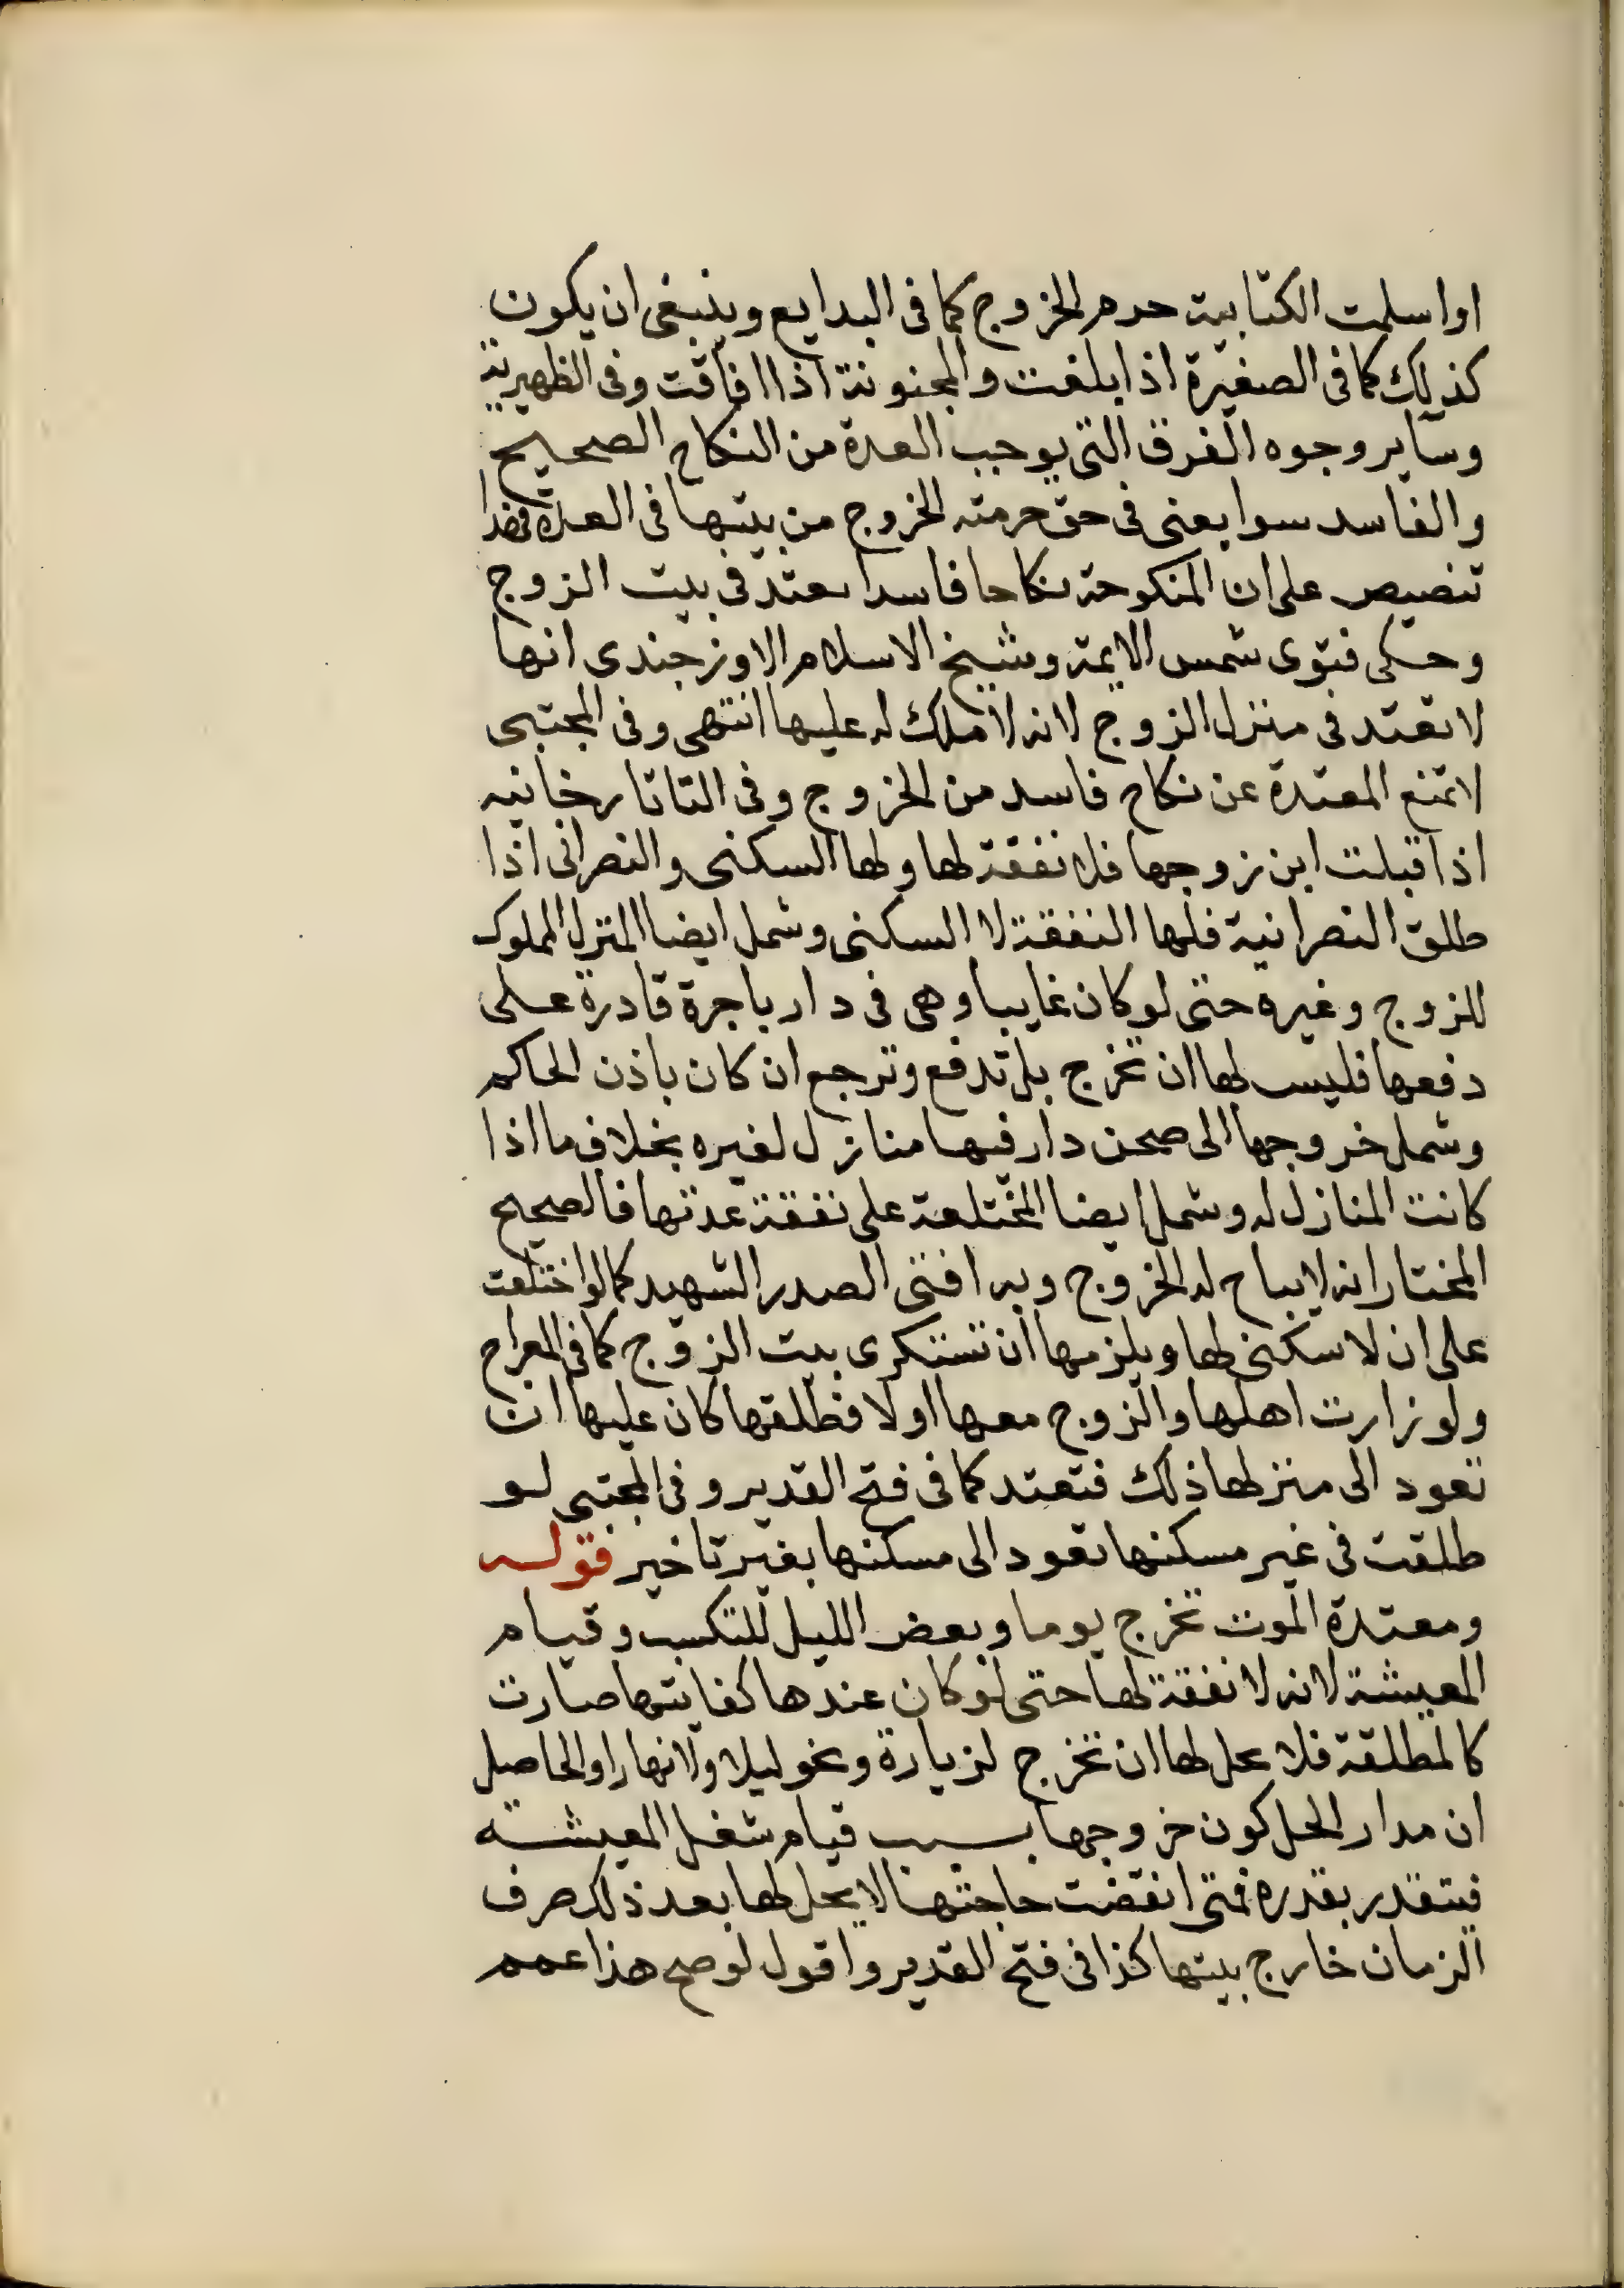 او اسلمت الكتابية حرم الخروج كما فى البدايع وينبغى ان يكون
كذلك كما فى الصغيرة اذا بلغت والمجنونة اذا افاقت وفى الظهيرية
وساير وجوه الفرق التى يوجب العدة من النكاح الصحيح
والفاسد سوا يعنى فى حق حرمته الخروج من بيتها فى العدة فهذا
تنصيص على ان المنكوحة نكاحا فاسدا تعتد فى بيت الزوج
وحكى فتوى شمس الايمة وشيخ الاسلام الاوزجندى انها
لا تعتد فى منزل الزوج لانه لا ملك له عليها انتهى وفى المجتبى
لا تمنع المعتدة عن نكاح فاسد من الخروج وفى التاتارخانيه
اذا قبلت ابن زوجها فلا نفقة لها ولها السكنى والنصرانى اذا
طلق النصرانية فلها النفقة لا السكنى وشمل ايضا المنزل المملوك
للزوج وغيره حتى لو كان غايبا وهى فى دار باجرة قادرة على
دفعها فليس لها ان تخرج بل تدفع وترجع ان كان باذن الحاكم
وشمل خروجها الى صحن دار فيها منازل لغيره بخلاف ما اذا
كانت المنازل له وشمل ايضا المختلعة على نفقة عدتها فالصحيح
المختار انه لا يباح له الخروج وبه افتى الصدر الشهيد كما لو اختلعت
على ان لا سكنى لها ويلزمها ان تستكرى بيت الزوج كما فى المعراج
ولو زارت اهلها والزوج معها اولا فطلقها كان عليها ان
تعود الى منزلها ذلك فتعتد كما فى فتح القدير وفى المجتبى لو
طلقت فى غير مسكنها تعود الى مسكنها بغير تاخير قوله
ومعتدة الموت تخرج يوما وبعض الليل للتكسب وقيام
المعيشة لانه لا نفقة لها حتى لو كان عندها كفايتها صارت
كالمطلقة فلا يحل لها ان تخرج لزيارة ونحو ليلا ولا نهارا والحاصل
ان مدار الحل كون خروجها بسبب قيام شغل المعيشة
فيتقدر بقدره فمتى انقضت حاجتها لا يحل لها بعد ذلك صرف
الزمان خارج بيتها كذا فى فتح القدير واقول لو صح هذا عمم